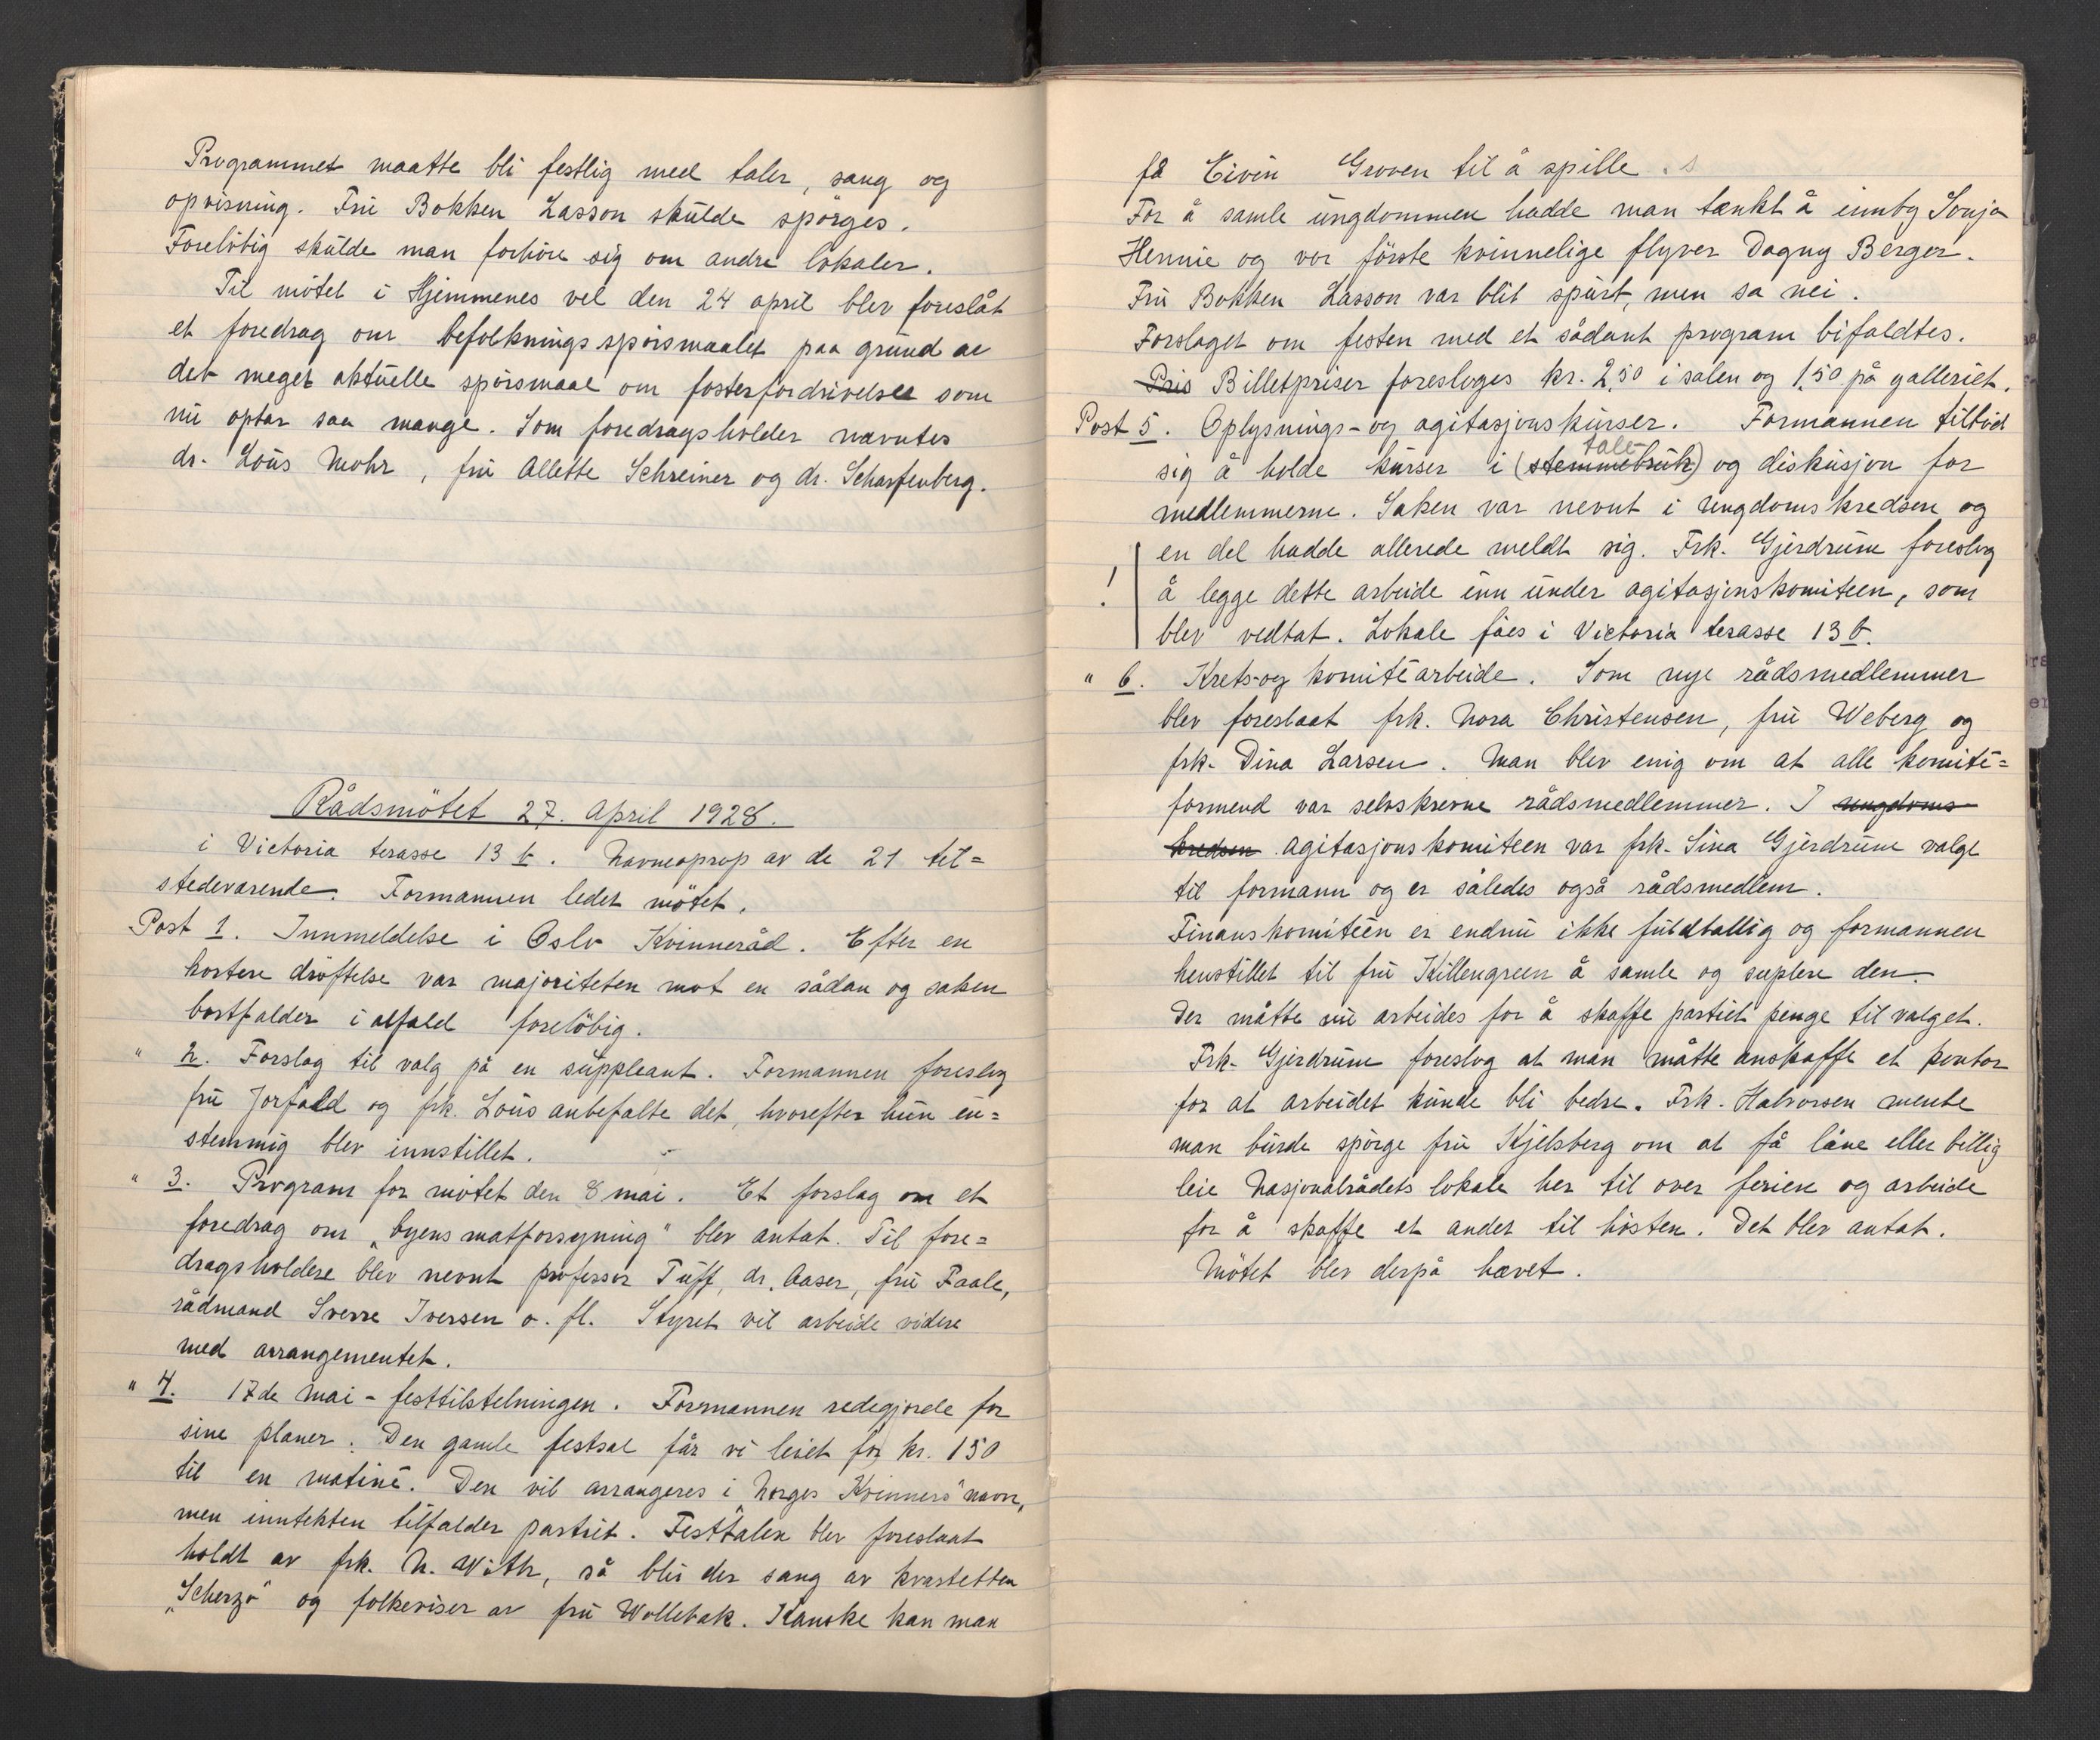 Programmet maatte bli festlig med taler, sang og
opvisning. Fru Bokken Lasson skulde spörges.
Foreløbig skulde man forhöre sig om andre lokaler.
Til mötet i Hjemmenes vel den 24 april blev foreslåt
et foredrag om befolkningsspörsmaalet paa grund av
det meget aktuelle spörsmaal om fosterfordrivelse som
nu optar saa mange. Som foredragsholder nævntes
dr. Lous Mohr, fru Allette Schreiner og dr. Scharfenberg.
Rådsmötet 27. April 1928.
i Victoria terasse 13 b. Navneoprop av de 21 til=
stedeværende. Formannen ledet mötet.
Post 1. Innmeldelse i Oslo Kvinneråd. Efter en
kortere dröftelse var majoriteten mot en sådan og saken
bortfalder i alfald forelöbig.
" 2. Forslag til valg på en suppleant. Formannen foreslog
fru Jorfald og frk. Lous anbefalte det, hvorefter hun en=
stemmig blev innstillet.
" 3. Program for mötet den 8 mai. Et forslag om et
foredrag om "byens matforsyning" blev antat. Til fore=
dragsholdere blev nevnt professor Tuff, dr. Aaser, fru Paale,
rådmand Sverre Iversen o. fl. Styret vil arbeide videre
med arrangementet.
" 4. 17de Mai - festtilstelningen. Formannen redegjorde for
sine planer. Den gamle festsal får vi leiet for kr. 150
til en matiné. Den vil arrangeres i "Norges Kvinners" navn,
men inntekten tilfalder partiet. Festtalen blev foreslaat
holdt av frk. N. With, så blir der sang av kvartetten
"Scherzo" og folkeviser av fru Wollebæk. Kanske kan man
få Eivin Groven til å spille.
For å samle ungdommen hadde man tænkt å innby Sonja
Hennie og vor förste kvinnelige flyver Dagny Berger.
Fru Bokken Lasson var blit spurt, men sa nei.
Forslaget om festen med et sådant program bifaldtes.
Pris Billetpriser foresloges kr. 2,50 i salen og 1,50 på galleriet.
Post 5. Oplysnings- og agitasjonskurser. Formannen tilböd
tale-
sig å holde kurser i (stemmebruk) og diskusjon for
medlemmerne. Saken var nevnt i ungdomskredsen og
en del hadde allerede meldt sig. Frk. Gjerdrum foreslog
! å legge dette arbeide inn under agitasjonskomiteen, som
blev vedtat. Lokale fåes i Victoria terasse 13 b.
" 6. Krets- og komitéarbeide. Som nye rådsmedlemmer
blev foreslaat frk. Nora Christensen, fru Weberg og
frk. Dina Larsen. Man blev enig om at alle komité=
formend var selvskrevne rådsmedlemmer. I ungdoms-
kredsen agitasjonskomiteen var frk. Sina Gjerdrum valgt
til formann og er således også rådsmedlem.
Finanskomitéen er endnu ikke fuldtallig og formannen
henstillet til fru Killengreen å samle og suplere den.
Der måtte nu arbeides for å skaffe partiet penge til valget.
Frk. Gjerdrum foreslog at man måtte anskaffe et kontor
for at arbeidet kunde bli bedre. Frk. Halvorsen mente
man burde spörge fru Kjelsberg om at få låne eller billig
leie Nasjonalrådets lokale her til over ferien og arbeide
for å skaffe et andet til hösten. Det blev antat.
Mötet blev derpå hævet.